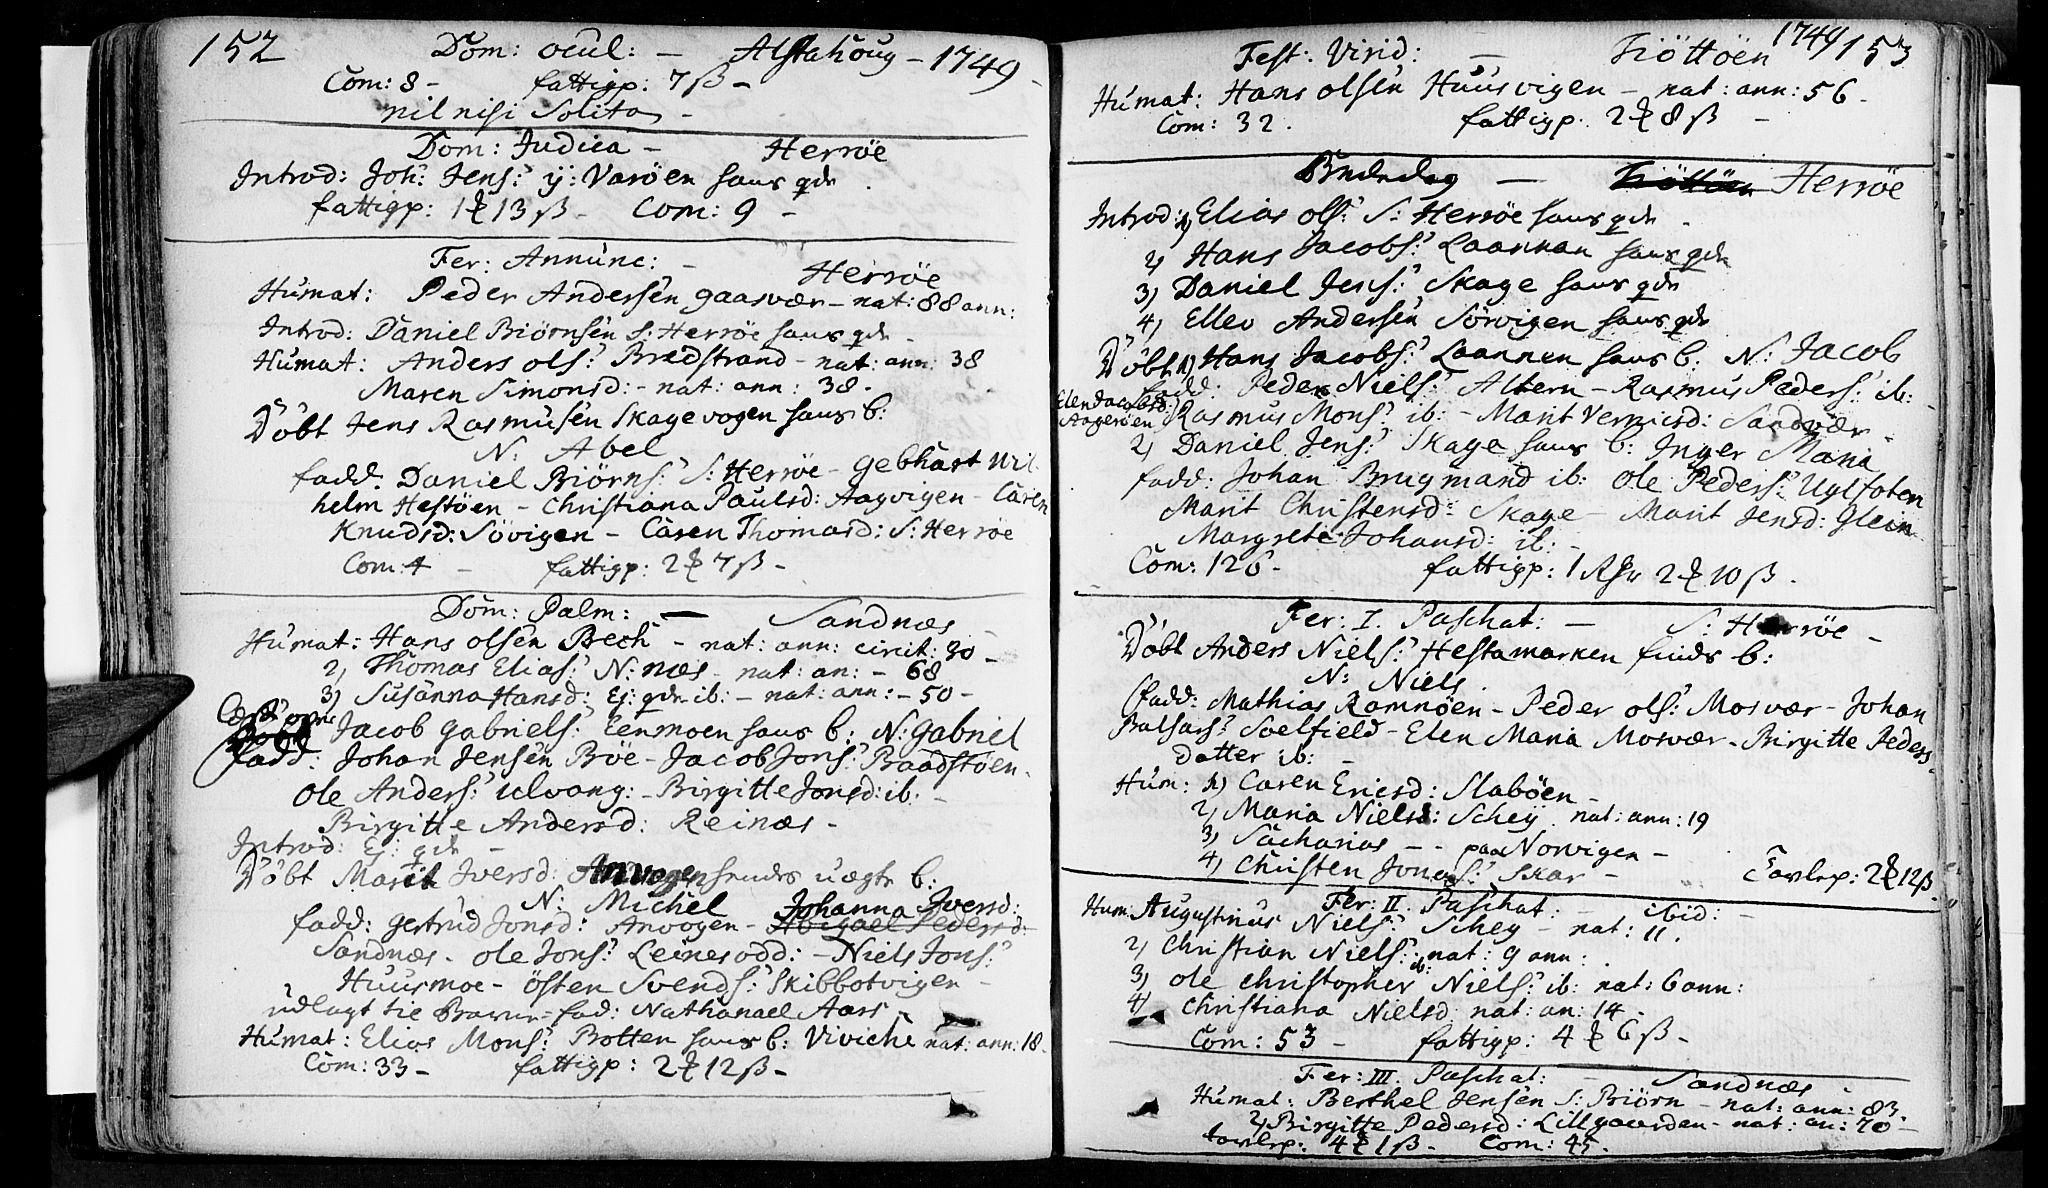 152 Dom: ocul: — Alstahoug – 1749 –
Com: 8 – fattigp: 7 ß –
nil nisi Solita –
Dom: Judica – Herröe
Introd: Joh: Jens: ÿ: Varöen hans qde
fattigp: 1 ₰ 13 ß – Com: 9 –
Fer: Annunc: – Herröe
Humat: Peder Andersen gaasvær – nat: 88 ann:
Introd: Daniel Biörnsen S: Herröe hans qde –
Humat: Anders ols: Bredstrand – nat: ann: 38
Maren Simonsd: – nat: ann: 38.
Döbt Jens Rasmusen Skagevogen hans b:
N: Abel
fadd. Daniel Biörns: S: Herröe – Gebhart Wil-
helm Hestöen – Christiana Paulsd: Aagvigen – Caren
Knudsd: Sövigen – Caren Thomasd: S: Herröe
Com: 4 – fattigp: 2 ₰ 7 ß –
Dom: Palm: — Sandnæs –
Humat: Hans olsen Bech – nat: ann: circit: 30 –
2) Thomas Elias: N: næs – nat: an: – 68
3) Susanna Hansd: Ej: qde ib: – nat: ann: – 50 –
Jacob gabriels: Eenmoen hans b: N: gabriel
fadd: Johan Jensen Böe – Jacob Jons: Baadstöen –
Ole Anders: Ulvang: – Birgitte Jonsd: ib: –
Birgitte Andersd: Reinæs –
Introd: Ej: qde –
Döbt Marit Iversd: hendes uægte b:
N: Michel Johanna Iversd:
fadd: gertrud Jonsd: Anvogen – Abigael Pedersd:
Sandnæs – ole Jons: Leinesodd: – Niels Jons:
Huusmoe – östen Svends: Skibbotvigen –
udlagt til Barne-fad: Nathanael Aars –
Humat: Elias Mons: Botten hans b: Viviche nat: ann: 18 –
Com: 33 – fattigp: 2 ₰ 12 ß –
1749 153
Fest: Virid: — Tiöttöen
Humat: Hans olsen Huusvigen – nat: ann: 56 –
Com: 32. fattigp: 2 ₰ 8 ß –
Bededag — Tiöttöen Herröe
Introd: 1) Elias ols: S: Herröe hans qde –
2) Hans Jacobs: Laannan hans qde
3) Daniel Jens: Skage hans qde
4) Ellev Andersen Sörvigen hans qde
Döbt 1) Hans Jacobs: Laannen hans b: N: Jacob
fadd: Peder Niels: Altern – Rasmus Peders: ib: –
Elen Jacobsd: Aageröen Rasmus Mons: ib: – Marit Vernisd: Sandvær –
2) Daniel Jens: Skage hans b: Inger Maria
fadd: Johan Brugmand ib: Ole Peders: Uglfoten
Marit Christensd: Skage – Marit Jensd: Glein –
Margrete Johansd: ib: –
Com: 126 – fattigp: 1 Rdr 2 ₰ 10 ß –
Fer: I. Paschat: — S: Herröe –
Döbt Anders Niels: Hestamarken hands b:
N: Niels.
fadd: Mathias Ramnöen – Peder ols: Mosvær – Johan
Balsars: Soelfield – Elen Maria Mosvær – Birgitte Peders-
datter ib: –
Hum: 1) Caren Ericsd: Slaböen –
2) Maria Nielsd: Scheÿ nat: ann: 19
3) Sacharias – – paa Norvigen –
4) Christen Jonas: Skar – Tavlep: 2 ₰ 12 ß.
Fer: II. Paschat: – ibid: –
Hum: Augustinus Niels: Schey – nat: 11.
2) Christian Niels: ib: nat: 9 ann:
3) Ole Christopher Niels: ib: nat: 6 ann:
4) Christiana Nielsd nat: an: 14 –
Com: 53 – fattigp: 4 ₰ 6 ß –
Fer: III. Paschat: – Sandnæs –
Humat: Berthel Jensen S: Biörn – nat: ann: 83 –
2) Birgitte Pedersd: Lillgaarden – nat: an: 70 –
tavlep: 4 ₰ 1 ß – Com: 45.